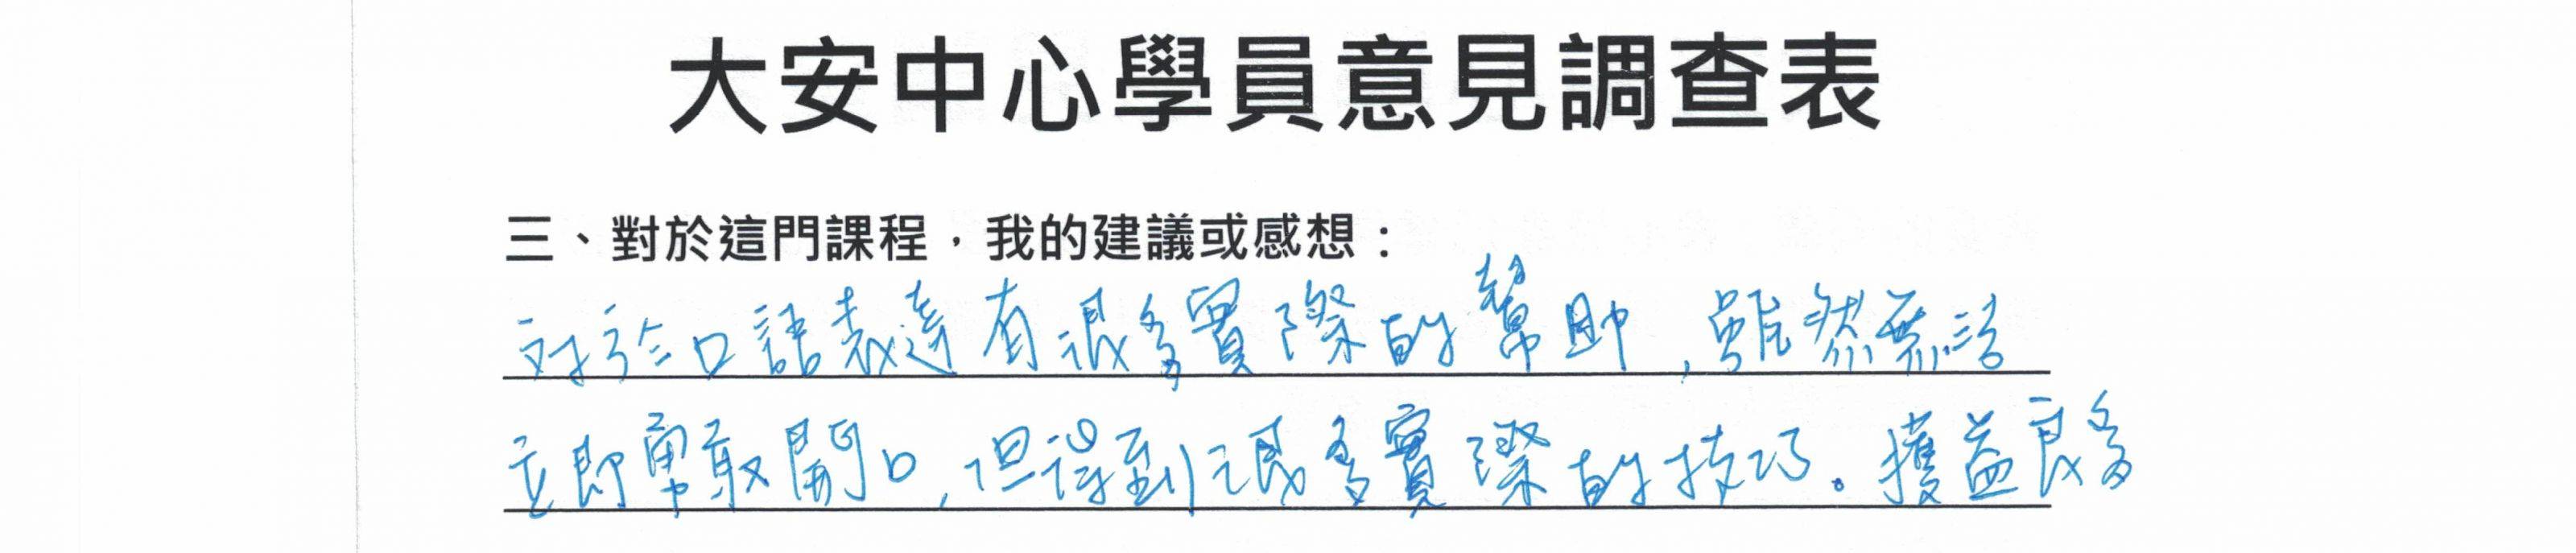 大安中心學員意見調查表
三、對於這門課程，我的建議或感想：
對於口語表達有很多實際的幫助,雖然無法
立即勇敢開口,但得到很多實際的技巧。獲益良多